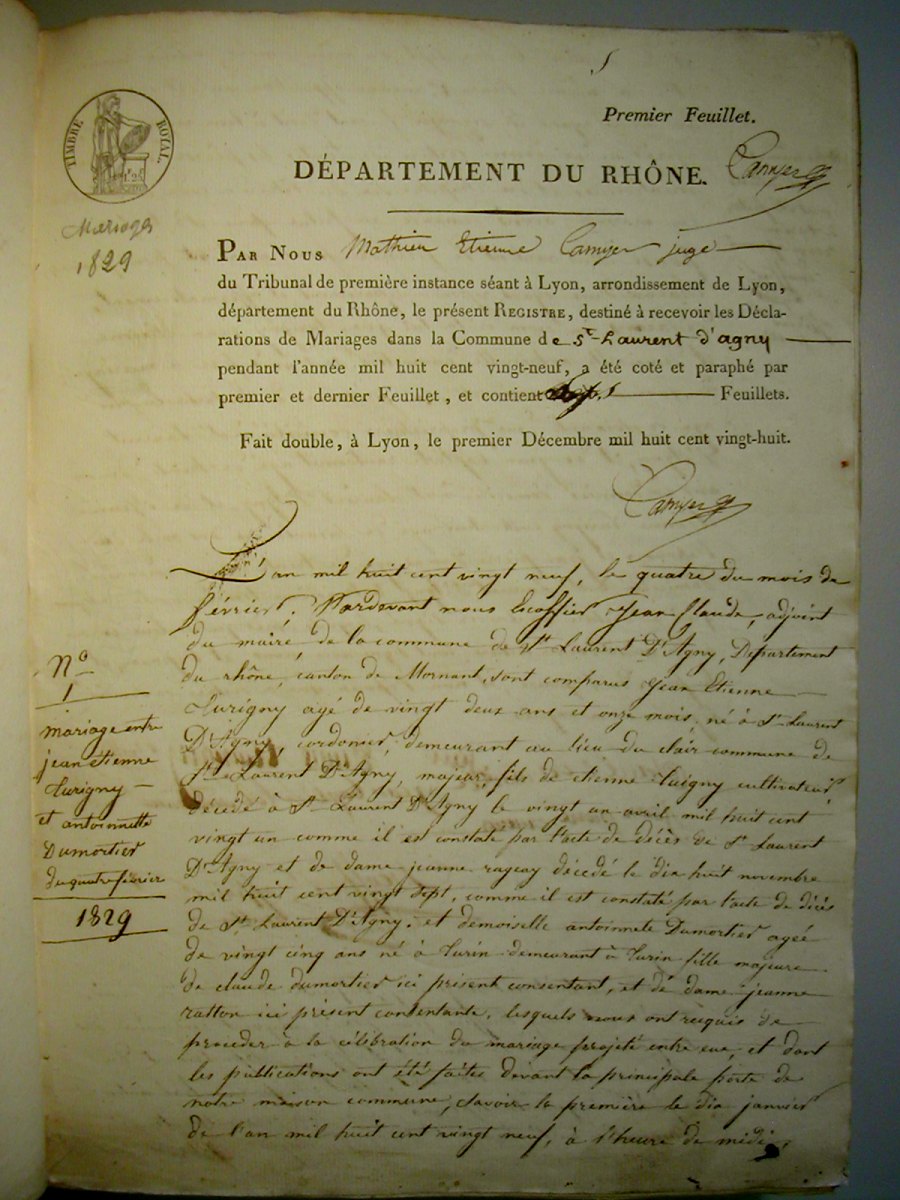 Premier Feuillet.
TIMBRE ROYAL.
DÉPARTEMENT DU RHÔNE.
Mariages
1829
PAR NOUS Mathieu Etienne Camyer juge
du Tribunal de première instance séant à Lyon, arrondissement de Lyon,
département du Rhône, le présent REGISTRE, destiné à recevoir les Décla-
rations de Mariages dans la Commune de St-Laurent d'agny
pendant l'année mil huit cent vingt-neuf, a été coté et paraphé par
premier et dernier Feuillet, et contient Feuillets.
Fait double, à Lyon, le premier Décembre mil huit cent vingt-huit.
L'an mil huit cent vingt neuf, le quatre du mois de
février, Pardevant nous Escoffier Jean Claude, adjoint
du maire, de la commune de St Laurent D'Agny, Departement
du rhône, canton de Mornant, sont comparus Jean Etienne
agé de vingt deux ans et onze mois, né à St Laurent
D'Agny, cordonier, demeurant au lieu du clair commune de
St Laurent D'Agny, majeur, fils de etienne cultivateur
décedé à St Laurent D'Agny le vingt un avril mil huit cent
vingt un comme il est constaté par l'acte de décès de St Laurent
D'Agny et de dame jeanne decedé le dix huit novembre
mil huit cent vingt sept, comme il est constaté par l'acte de décès
de St Laurent D'Agny. et demoiselle antoinnete Dumortier agée
de vingt cinq ans né à Turin demeurant à Turin fille majeure
de claude dumortier ici present consentant, et de dame jeanne
ratton ici présent consentante, lesquels nous ont requis de
proceder à la célibration du mariage projeté entre eux, et dont
les publications ont été faites devant la principale porte de
notre maison commune, savoir la première le dix janvier
de l'an mil huit cent vingt neuf, à l'heure de midi,
No
1
mariage entre
jean etienne
et antoinnette
Dumortier
du quatre fevrier
1829